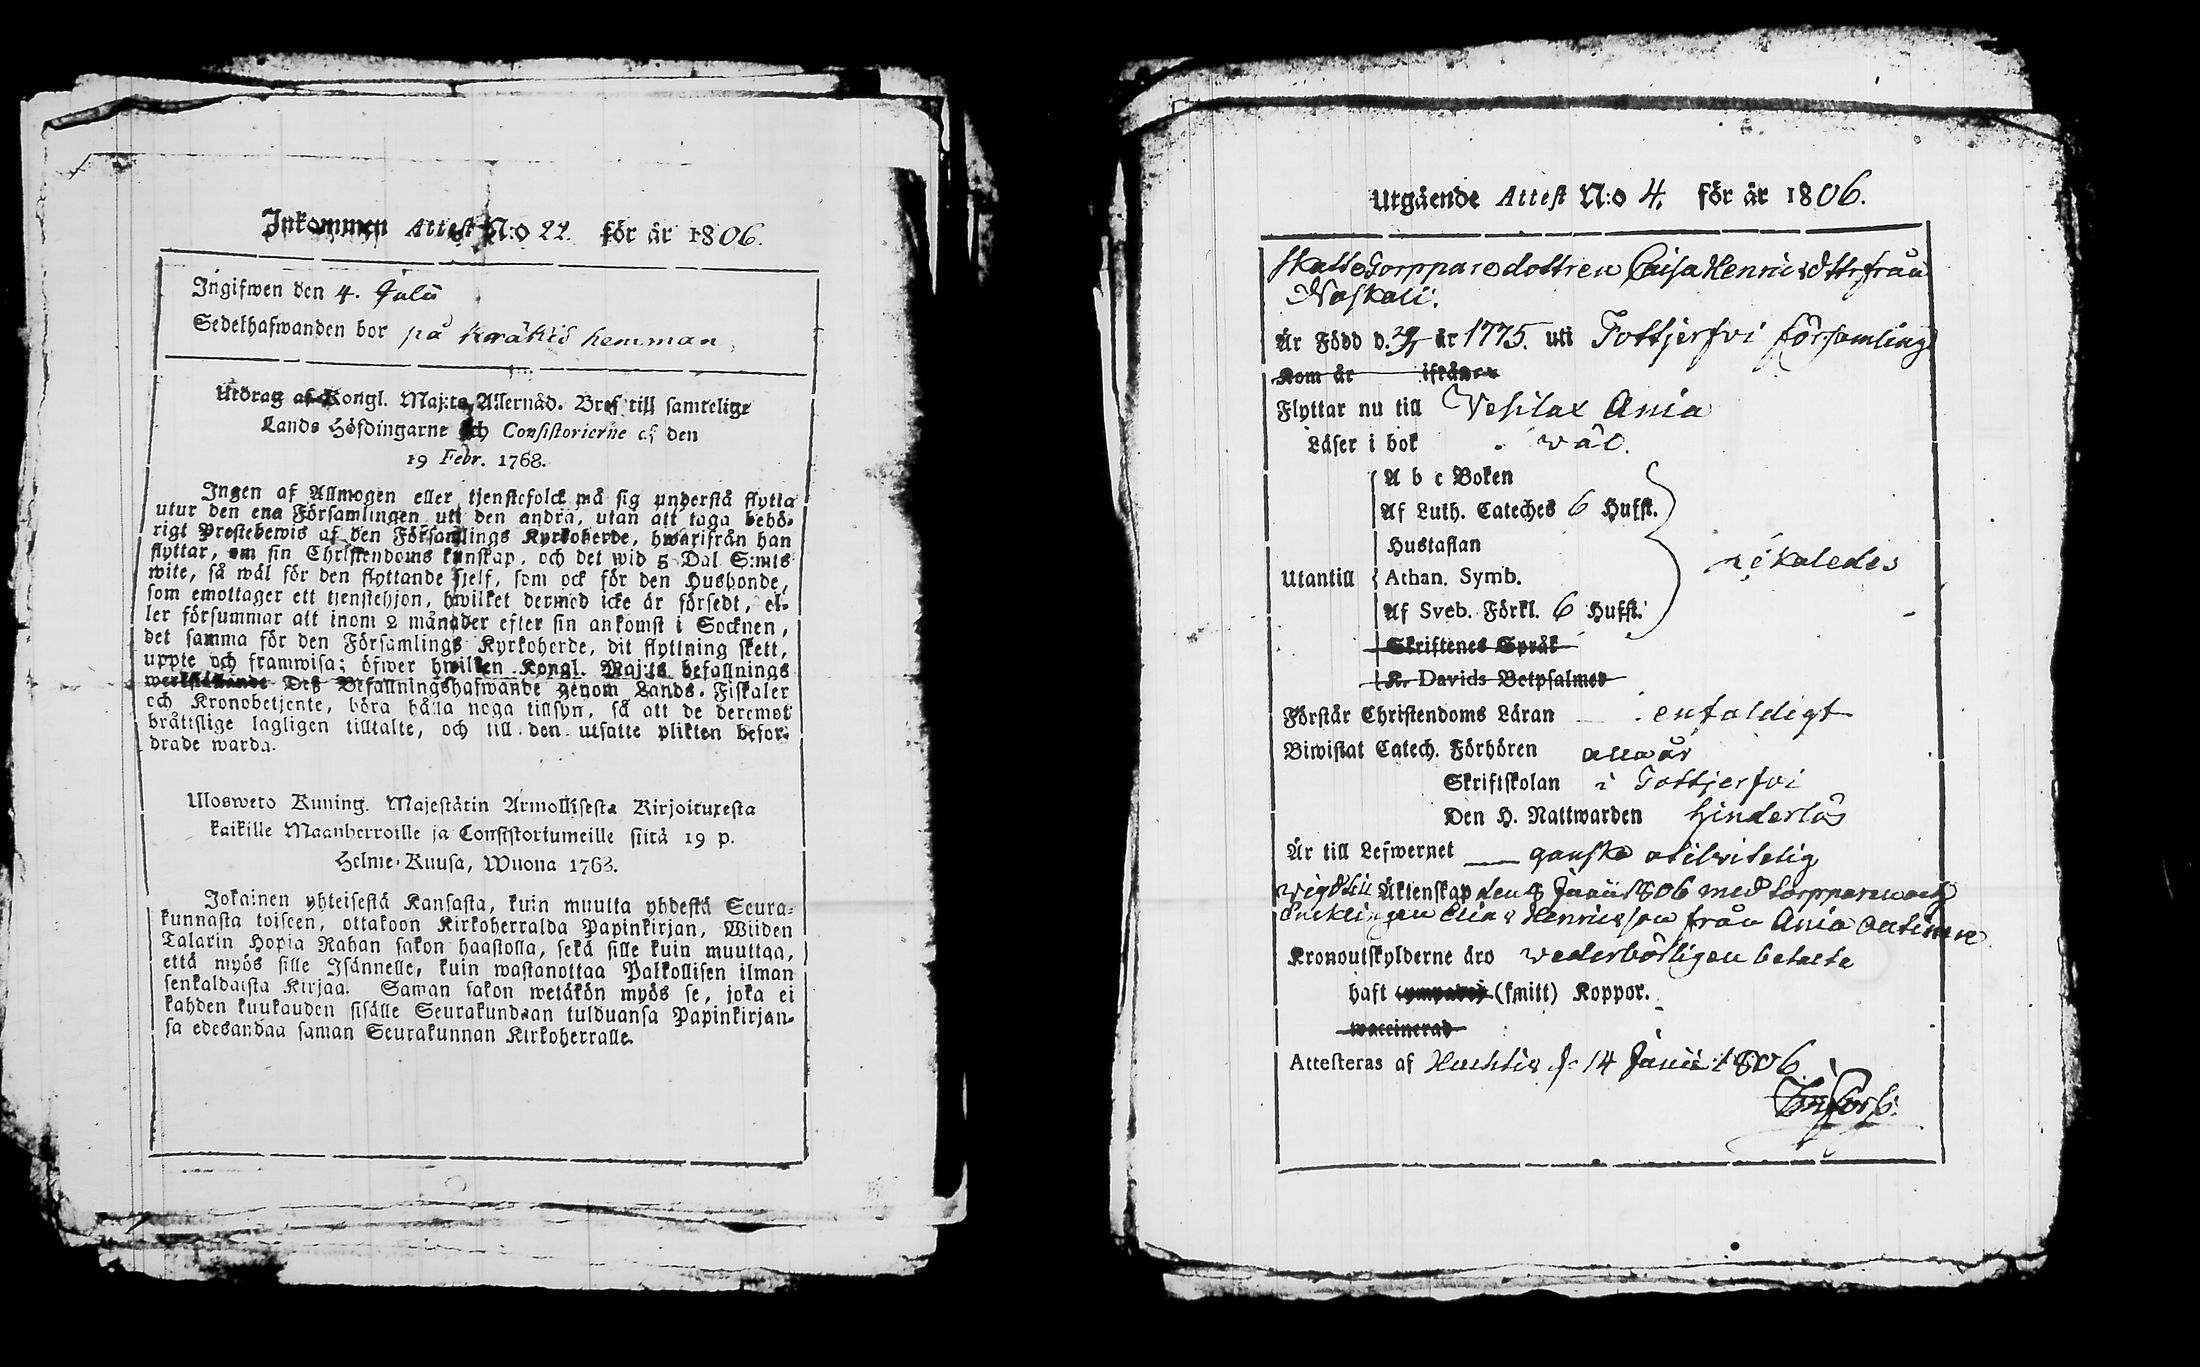 Inkommen Attest N:o 22. för år 1806.
Ingifwen den 4. Julii
Sedelhafwanden bor på hemman
Utdrag af Kongl. Maj:ts Allernåd. Bref till samtelige
Lands Höfdingarne och Consistorierne af den
19 Febr. 1768.
Ingen af Allmogen eller tjenstefolck må sig understå flytta
utur den ena Församlingen uti den andra, utan att taga behö-
rigt Prestebewis af den Församlings Kyrkoherde, hwarifrån han
flyttar, om sin Christendoms kunskap, och det wid 5 Dal. S:mts
wite, så wäl för den flyttande sjelf, som ock för den Husbonde,
som emottager ett tjenstehjon, hwilket dermed icke är försedt, el-
ler försummar att inom 2 månader efter sin ankomst i Socknen,
det samma för den Församlings Kyrkoherde, dit flyttning skett,
uppte och framwisa; öfwer hwilken Kongl. Maj:ts befallnings
werkställande Deß Befallningshafwande genom Lands-Fiskaler
och Kronobetjente, böra hålla noga tillsyn, så att de deremot
bråttslige lagligen tilltalte, och till den utsatte plikten befor-
drade warda.
Ulosweto Kuning. Majestätin Armollisesta Kirjoituxesta
kaikille Maanherroille ja Consistoriumeille siitä 19 p.
Helme-Kuusa, Wuona 1768.
Jokainen yhteisestä Kansasta, kuin muutta yhdestä Seura-
kunnasta toiseen, ottakoon Kirkoherralda Papinkirjan, Wiiden
Talarin Hopia Rahan sakon haastolla, sekä sille kuin muuttaa,
että myös sille Isännelle, kuin wastanottaa Palkollisen ilman
senkaldaista Kirjaa. Saman sakon wetäkön myös se, joka ei
kahden kuukauden sisälle Seurakundaan tulduansa Papinkirjan-
sa edesandaa saman Seurakunnan Kirkoherralle.
Utgående Attest N:o 4. för år 1806.
Skattetorppare dottren Caisa Henricsdttr från
Noskali.
Är Född d. år 1775. uti Tottjerfvi församling
Kom år ifrån
Flyttar nu till Vesilax Ania
Läser i bok wäl.
A b c Boken
Af Luth. Cateches 6 Hufst.
Hustaflan
Utantill Athan. Symb. nökaledes
Af Sveb. Förkl. 6 Hufst.
Skriftenes Språk
K. Davids Botpsalmer
Förstår Christendoms Läran enfaldigt
Biwistat Catech. Förhören alla år
Skriftskolan i Tottjerfvi
Den H. Nattwarden hinderlös
Är till Lefwernet ganske otilvitelig
wigd till Äktenskap den Junii 1806 med torppare
Enklingen Elias Henricsson från Ania
Kronoutskylderne äro wederbörligen betalte
haft (smitt) Koppor.
waccinerad
Attesteras af Huhtis d. 14 Junii 1806